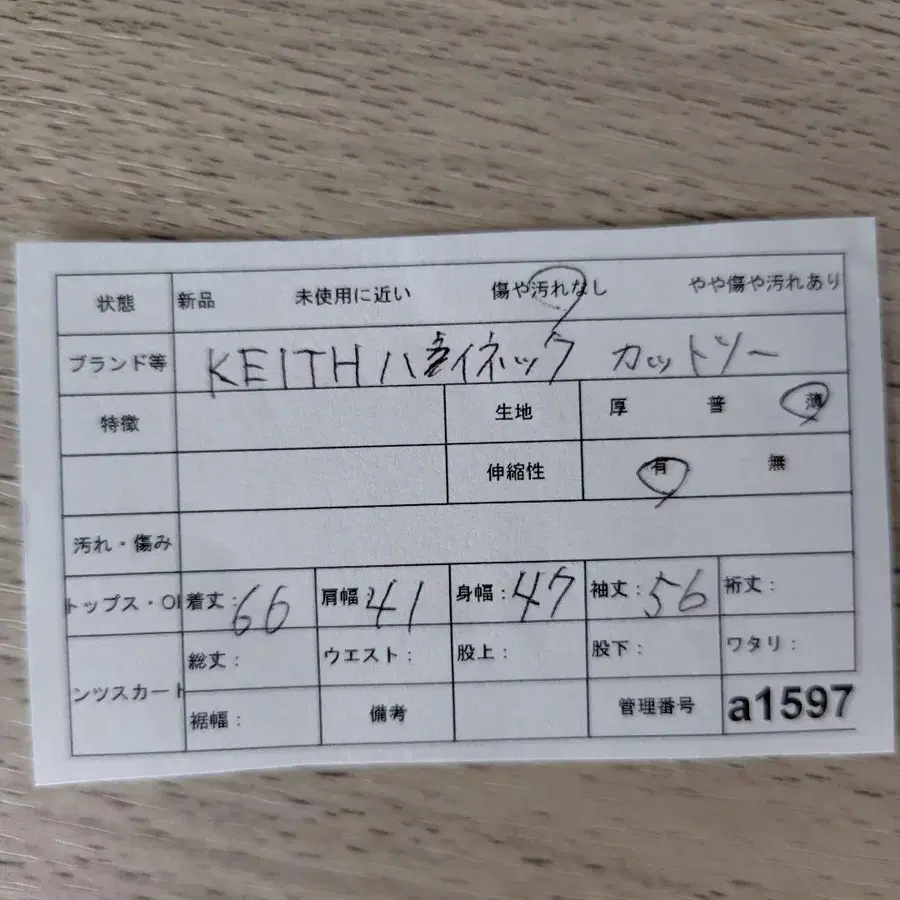 状態 新品 未使用に近い 傷や汚れなし やや傷や汚れあり
ブランド等 KEITH ハイネック カットソー
特徴 生地 厚 普 薄
伸縮性 有 無
汚れ・傷み
トップス・Ol 着丈:66 肩幅:41 身幅:47 袖丈:56 裄丈:
ンツスカート 総丈: ウエスト: 股上: 股下: ワタリ:
裾幅: 備考 管理番号 a1597